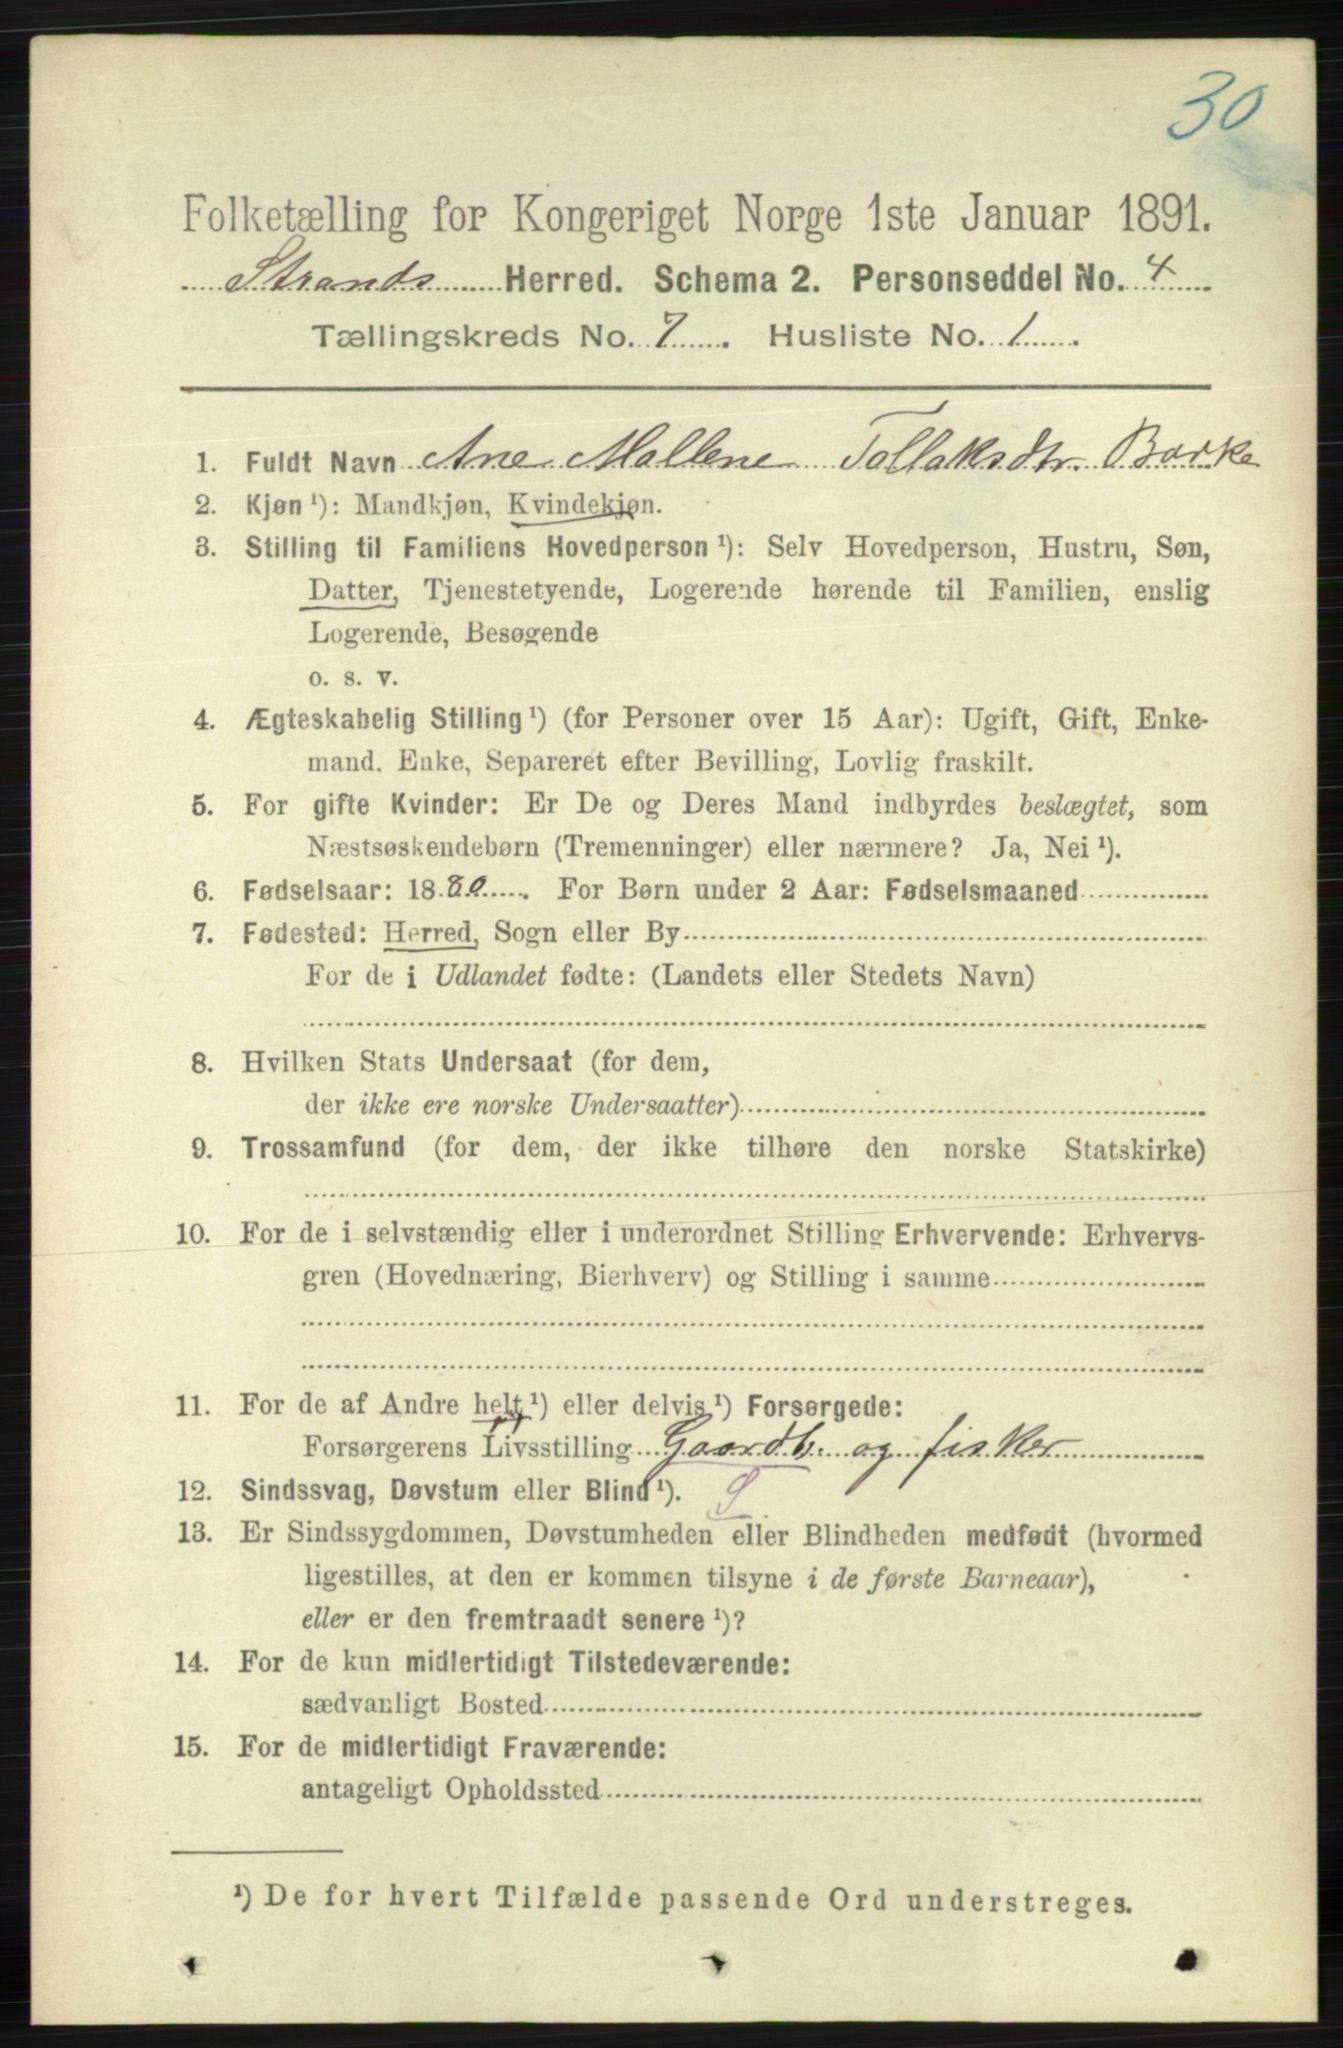 30
Folketælling for Kongeriget Norge 1ste Januar 1891.
Strands Herred. Schema 2. Personseddel No. 4
Tællingskreds No. 7. Husliste No. 1.
1. Fuldt Navn Ane Mallene Tollaksdtr. Barke
2. Kjøn¹): Mandkjøn, Kvindekjøn.
3. Stilling til Familiens Hovedperson¹): Selv Hovedperson, Hustru, Søn,
Datter, Tjenestetyende, Logerende hørende til Familien, enslig
Logerende, Besøgende
o. s. v.
4. Ægteskabelig Stilling¹) (for Personer over 15 Aar): Ugift, Gift, Enke-
mand, Enke, Separeret efter Bevilling, Lovlig fraskilt.
5. For gifte Kvinder: Er De og Deres Mand indbyrdes beslægtet, som
Næstsøskendebørn (Tremenninger) eller nærmere? Ja, Nei¹).
6. Fødselsaar: 1880. For Børn under 2 Aar: Fødselsmaaned
7. Fødested: Herred, Sogn eller By
For de i Udlandet fødte: (Landets eller Stedets Navn)
8. Hvilken Stats Undersaat (for dem,
der ikke ere norske Undersaatter)
9. Trossamfund (for dem, der ikke tilhøre den norske Statskirke)
10. For de i selvstændig eller i underordnet Stilling Erhvervende: Erhvervs-
gren (Hovednæring, Bierhverv) og Stilling i samme
11. For de af Andre helt¹) eller delvis¹) Forsørgede:
Forsørgerens Livsstilling Gaardb. og fisker
12. Sindssvag, Døvstum eller Blind¹). S
13. Er Sindssygdommen, Døvstumheden eller Blindheden medfødt (hvormed
ligestilles, at den er kommen tilsyne i de første Barneaar),
eller er den fremtraadt senere¹)?
14. For de kun midlertidigt Tilstedeværende:
sædvanligt Bosted
15. For de midlertidigt Fraværende:
antageligt Opholdssted
¹) De for hvert Tilfælde passende Ord understreges.